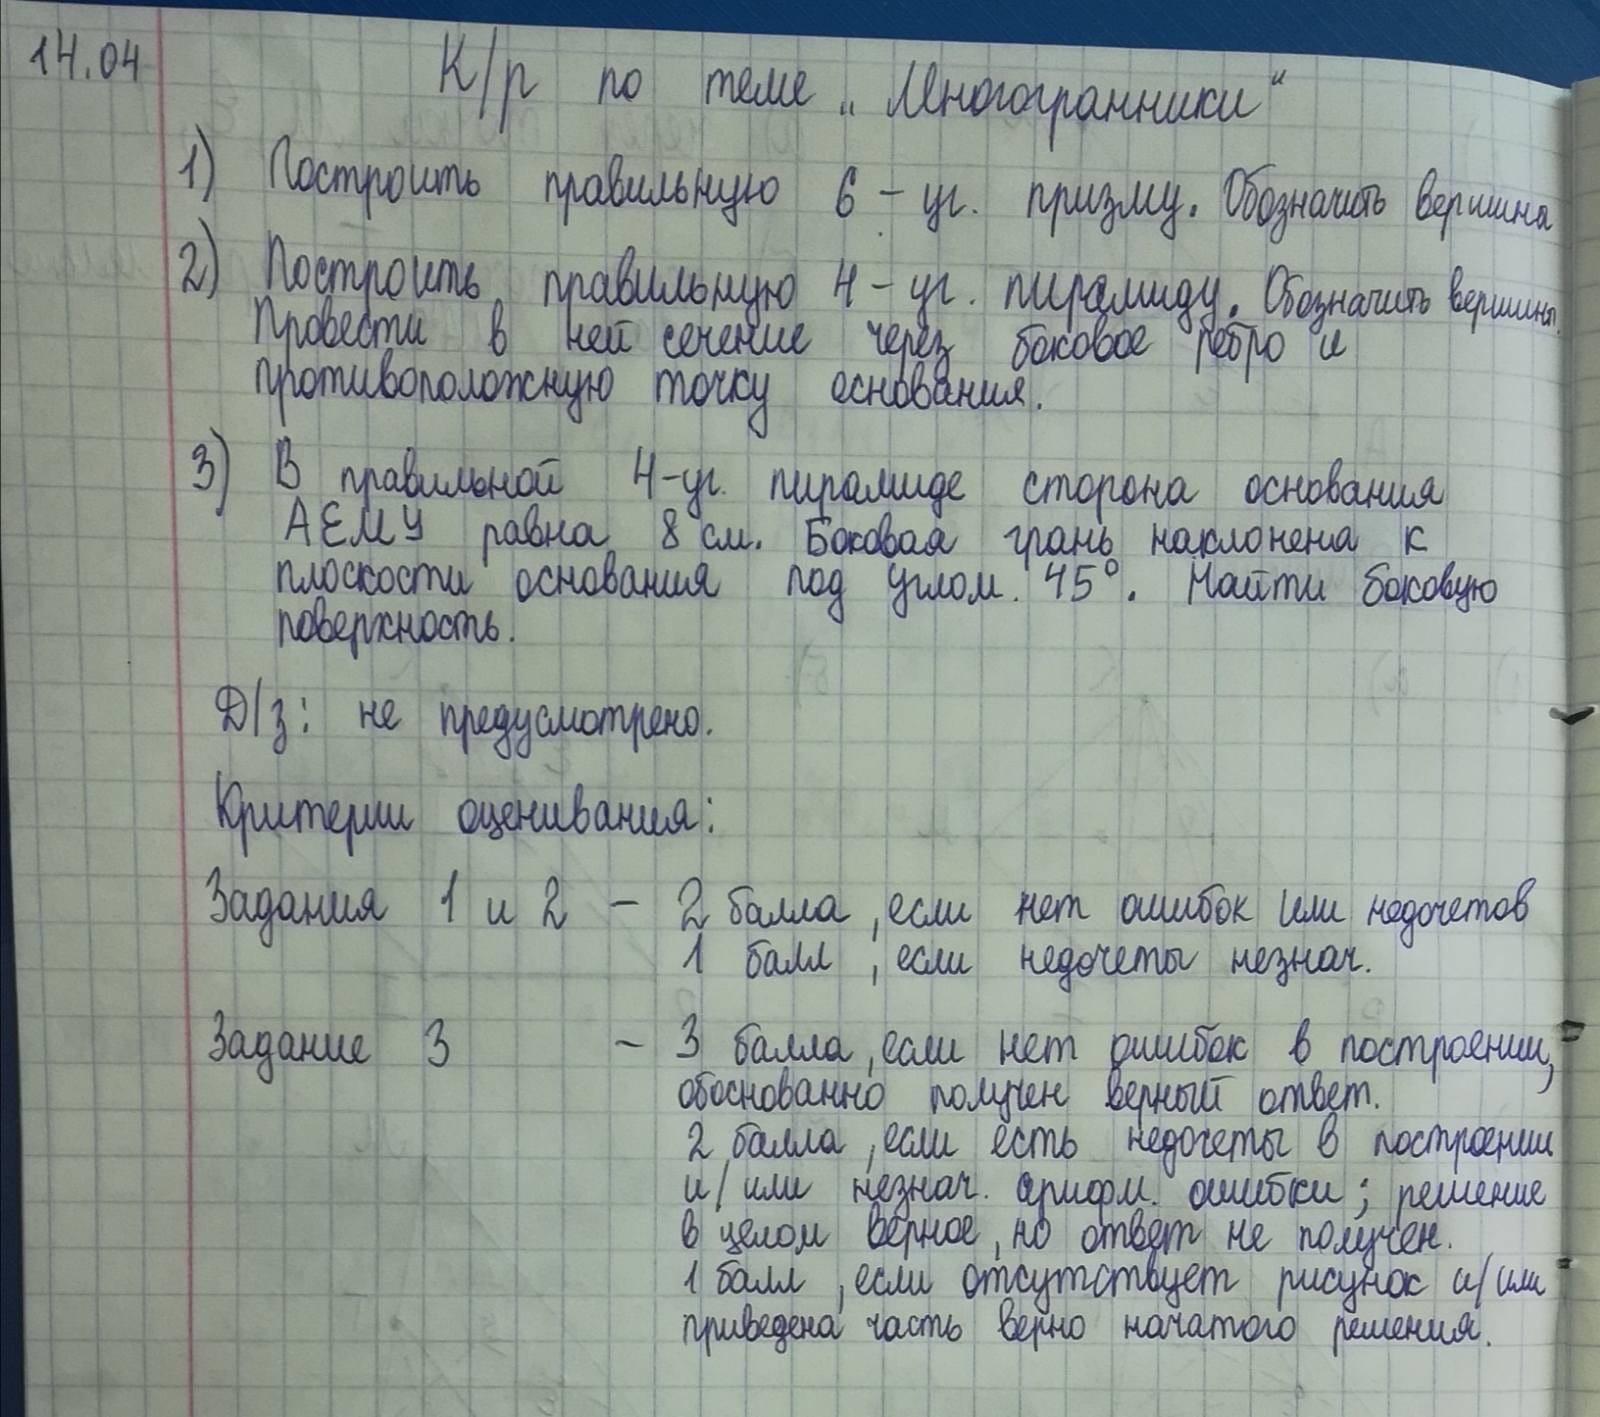 14.04
К/р по теме „Многогранники“
1) Построить правильную 6-уг. призму. Обозначить вершины
2) Построить правильную 4-уг. пирамиду. Обозначить вершины.
Провести в ней сечение через боковое ребро и
противоположную точку основания.
3) В правильной 4-уг. пирамиде сторона основания
АЕМУ равна 8 см. Боковая грань наклонена к
плоскости основания под углом 45°. Найти боковую
поверхность.
Д/з: не предусмотрено.
Критерии оценивания:
Задания 1 и 2 – 2 балла, если нет ошибок или недочетов
1 балл, если недочеты незнач.
Задание 3 – 3 балла, если нет ошибок в построении,
обоснованно получен верный ответ.
2 балла, если есть недочеты в построении
и/или незнач. арифм. ошибки; решение
в целом верное, но ответ не получен.
1 балл, если отсутствует рисунок и/или
приведена часть верно начатого решения.